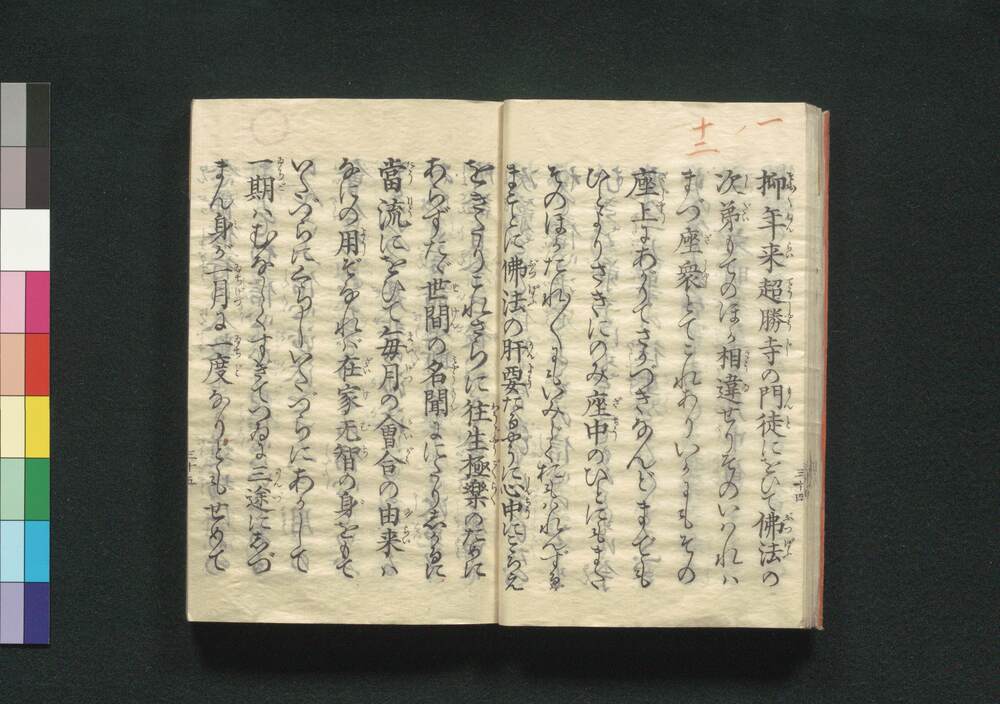 一ノ
十二
抑年来超勝寺の門徒にをひて佛法の
次第もてのほか相違せりそのいはれハ
まづ座衆とてこれありいかにもその
座上にあがりてさかつきなんどまでも
ひとよりさきにのみ座中のひとにもまた
そのほかたれ〳〵にもいみじくおもはれんずるか
まことに佛法の肝要たるやうに心中にこゝろえ
をきたりこれさらに往生極楽のために
あらずたゞ世間の名聞にゝたりしかるに
當流にをひて毎月の會合の由来ハ
なにの用ぞなれバ在家无智の身をもて
いたづらにくらしいたづらにあかして
一期ハむなしくすぎてつゐに三途にしづ
まん身が一月に一度なりとも せめて
三十四
三十五